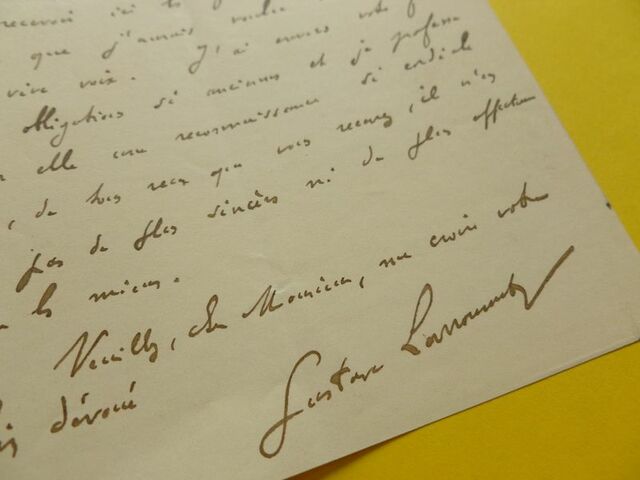 recevoir ici
que j'aurais voulu
vive voix. J'ai envers votre
obligations si anciennes et je professe
elle une reconnaissance si cordiale
, de tous ceux que vous recevez, il n'es
pas de plus sincères ni de plus affectueux
les miens.
Veuillez, cher Monsieur, me croire votre
dévoué
Gustave Larroumet